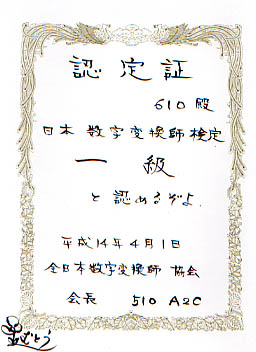 認定証
610殿
日本 数字変換師検定
一 級
と認めるぞよ.
平成14年4月1日
全日本数字変換師 協会
会長 510 A2C